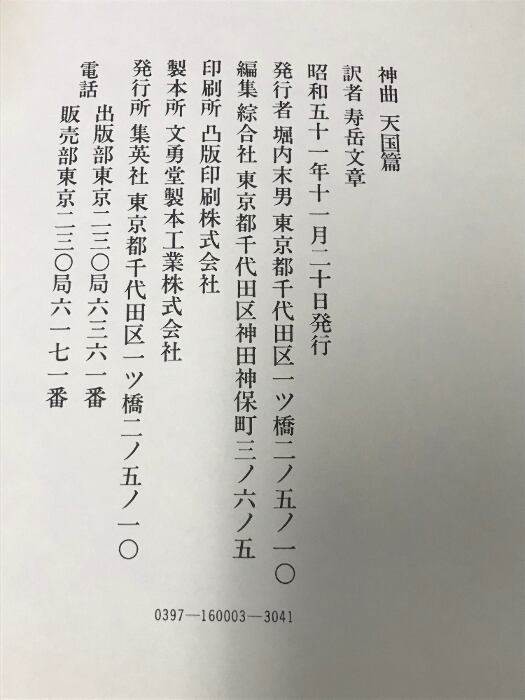 神曲 天国篇
訳者 寿岳文章
昭和五十一年十一月二十日発行
発行者 堀内末男 東京都千代田区一ツ橋二ノ五ノ一〇
編集 綜合社 東京都千代田区神田神保町三ノ六ノ五
印刷所 凸版印刷株式会社
製本所 文勇堂製本工業株式会社
発行所 集英社 東京都千代田区一ツ橋二ノ五ノ一〇
電話 出版部東京二三〇局六三六一番
販売部東京二三〇局六一七一番
0397―160003―3041